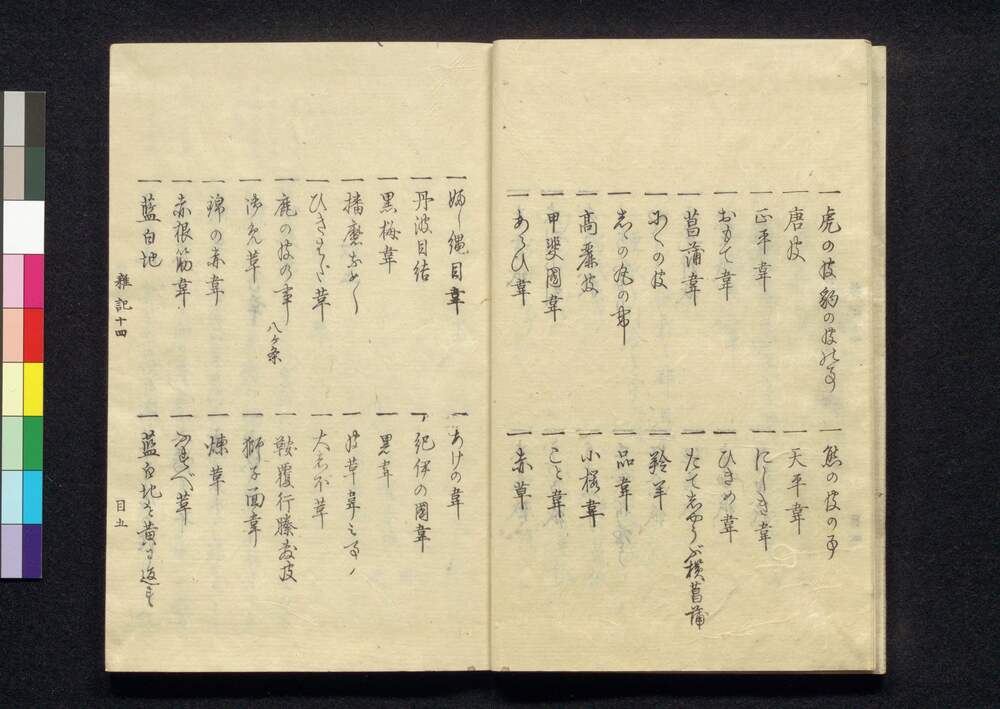 一 虎の皮豹の皮の事 一 熊の皮の事
一 唐皮 一 天平韋
一 正平韋 一 にしき韋
一 おもて韋 一 ひきめ韋
一 菖蒲韋 一 たてしやうぶ横菖蒲
一 の皮 一 羚羊
一 しゝの丸の韋 一 品韋
一 高麗皮 一 小桜韋
一 甲斐國韋 一 こと韋
一 あらひ韋 一 赤革
一 ふし縄目韋 一 あけの韋
一 丹波目結 一 紀伊の國韋
一 黒梅韋 一 黒韋
一 播磨なめし 一 皮革韋之事
一 ひきはた革 一 大しほ革
一 鹿の皮の事 八ヶ条 一 鞍覆行縢皮
一 御免革 一 獅子面韋
一 錦の赤韋 一 燻革
一 赤根筋韋 一 ふすべ革
一 藍白地 一 藍白地を黄に返す
雑記十四 目五